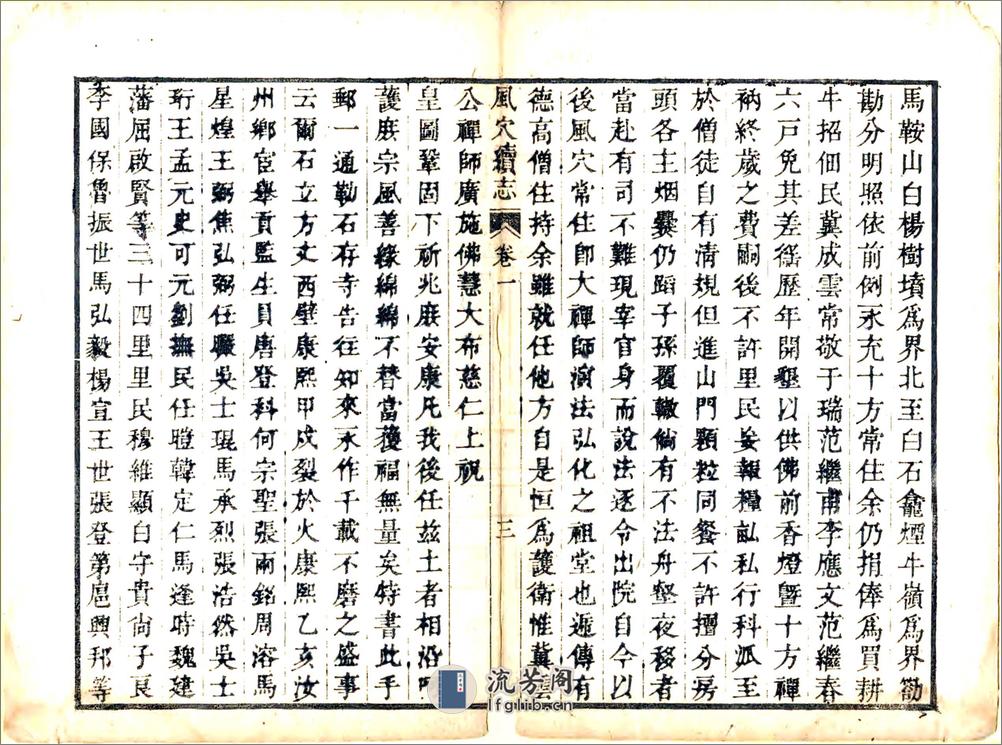 馬鞍山白楊樹墳爲界北至白石龕煙牛嶺爲界勘
勘分明照依前例永充十方常住余仍捐俸爲買耕
牛招佃民冀成雲常敬于瑞范繼甫李應文范繼春
六戸免其差徭歷年開墾以供佛前香燈曁十方禪
衲終歲之費嗣後不許里民妄報糧畆私行科派至
於僧徒自有清規但進山門顆粒同餐不許擅分房
頭各主烟爨仍蹈子孫覆轍倘有不法舟壑夜移者
當赴有司不難現宰官身而說法逐令出院自今以
後風穴常住卽大禪師演法弘化之祖堂也遞傳有
德高僧住持余雖就任他方自是恒爲護衛惟冀雲
風穴續志 卷一 三
公禪師廣施佛慧大布慈仁上祝
皇圖鞏固下祈兆庶安康凡我後任茲土者相沿
護庶宗風善緣綿綿不替當獲福無量矣特書此手
郵一通勒石存寺告往知來永作千載不磨之盛事
云爾石立方丈西壁康熙甲戌裂於火康熙乙亥汝
州鄉宦舉貢監生員唐登科何宗聖張兩銘周溶馬
星煌王弼焦弘弼任職吳士琨馬承烈張浩然吳士
珩王孟元史可元劉撫民任瞪韓定仁馬逢時魏建
藩屈啟賢等三十四里里民穆維顯白守貴尙子良
李國保魯振世馬弘毅楊宣王世張登第扈興邦等
流芳閣
lfglib.cn